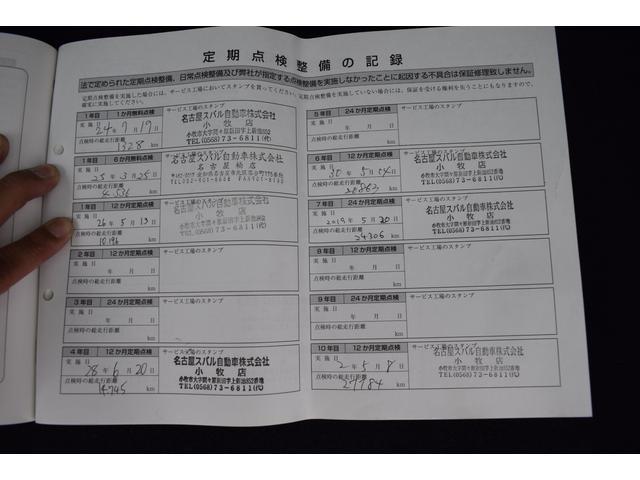 定期点検整備の記録
法で定められた定期点検、日常点検整備及び弊社が指定する点検整備を実施しなかったことに起因する不具合は保証修理致しません。
定期点検整備を実施した場合には、サービス工場においてスタンプを貰ってください。定期点検整備を実施していない場合には、保証を受ける権利を失うこともなりますので、
確実に実施してください。
1年目 1か月無料点検
サービス工場のスタンプ
実施日
24年7月19日
点検時の総走行距離
1328 km
名古屋スバル自動車株式会社
小牧店
TEL(0568)73-6811(代)
1年目 6か月無料点検
サービス工場のスタンプ
実施日
25年3月25日
点検時の総走行距離
km
名古屋スバル自動車株式会社
1年目 12か月定期点検
サービス工場のスタンプ
実施日
26年5月13日
点検時の総走行距離
km
名古屋スバル自動車株式会社
小牧店
TEL(0568)73-6811(代)
2年目 12か月定期点検
サービス工場のスタンプ
実施日
年 月 日
点検時の総走行距離
km
3年目 24か月定期点検
サービス工場のスタンプ
実施日
年 月 日
点検時の総走行距離
km
4年目 12か月定期点検
サービス工場のスタンプ
実施日
28年6月20日
点検時の総走行距離
14745 km
名古屋スバル自動車株式会社
小牧店
TEL(0568)73-6811(代)
5年目 24か月定期点検
サービス工場のスタンプ
実施日
年 月 日
点検時の総走行距離
km
6年目 12か月定期点検
サービス工場のスタンプ
実施日
30年5月14日
点検時の総走行距離
km
名古屋スバル自動車株式会社
小牧店
TEL(0568)73-6811(代)
7年目 24か月定期点検
サービス工場のスタンプ
実施日
2019年5月20日
点検時の総走行距離
24306 km
名古屋スバル自動車株式会社
小牧店
TEL(0568)73-6811(代)
8年目 12か月定期点検
サービス工場のスタンプ
実施日
年 月 日
点検時の総走行距離
km
9年目 24か月定期点検
サービス工場のスタンプ
実施日
年 月 日
点検時の総走行距離
km
10年目 12か月定期点検
サービス工場のスタンプ
実施日
2年5月8日
点検時の総走行距離
27784 km
名古屋スバル自動車株式会社
小牧店
TEL(0568)73-6811(代)